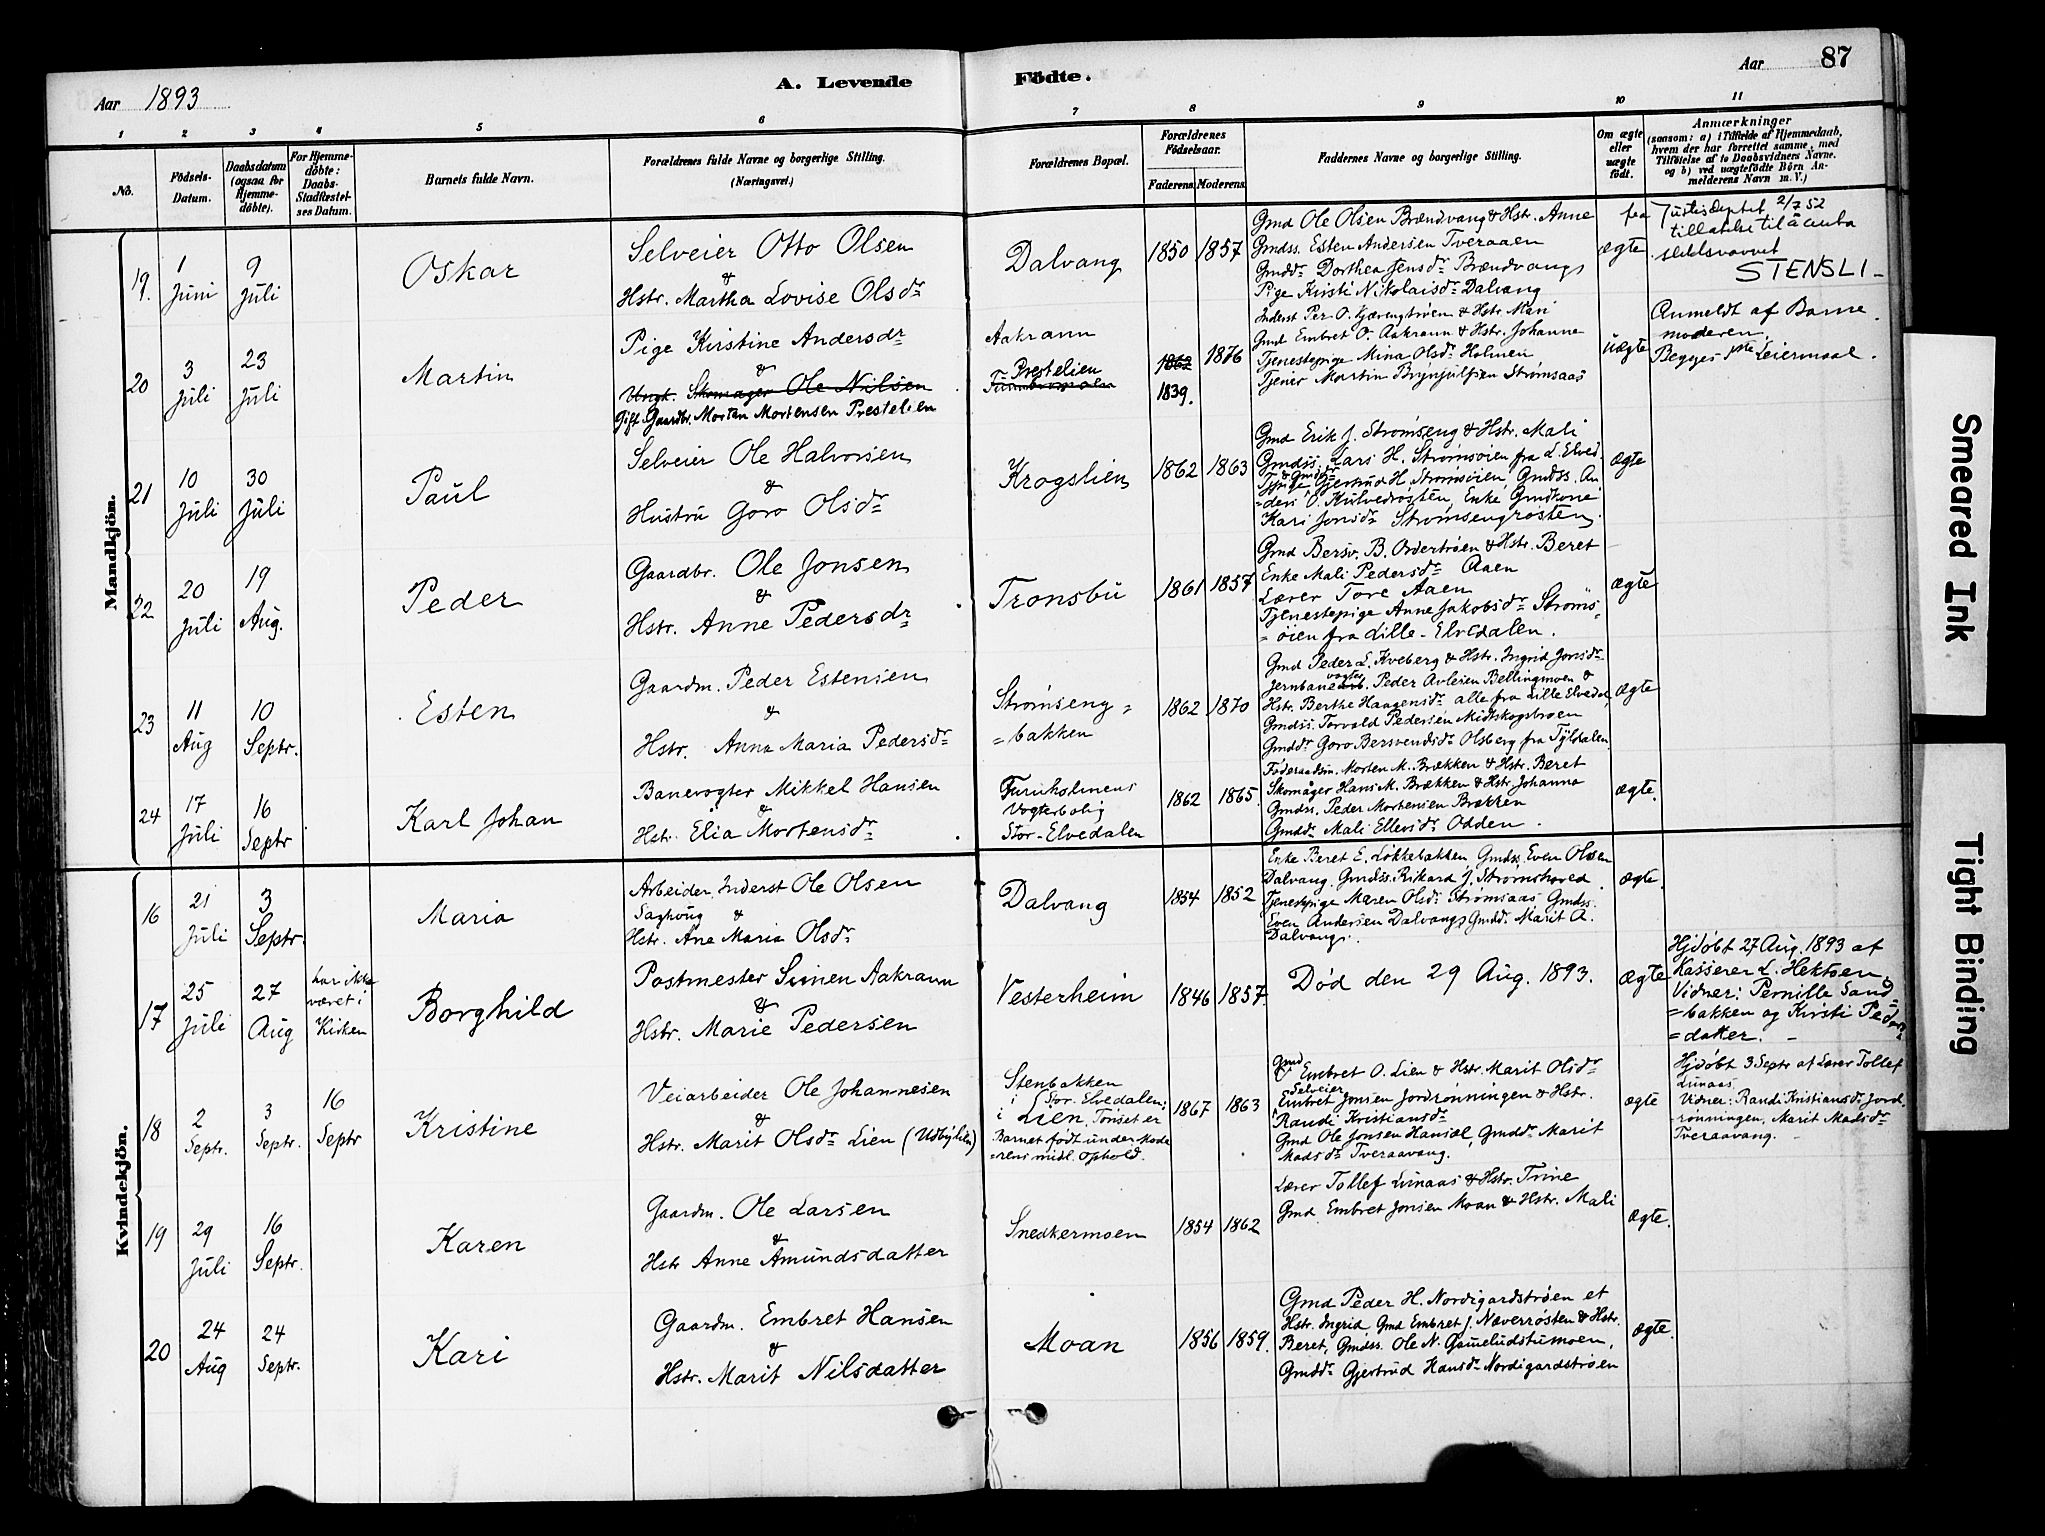 Aar 1893
A. Levende Födte.
Aar 87
1 2 3 4 5 6 7 8 9 10 11
No.
Födsels-Datum.
Daabsdatum (ogsaa for Hjemme-döbte).
For Hjemme-döbte: Daabs-Stadfæstel-ses Datum.
Barnets fulde Navn.
Forældrenes fulde Navne og borgerlige Stilling. (Næringsvei.)
Forældrenes Bopæl.
Forældrenes Födselsaar.
Faderens. Moderens.
Faddernes Navne og borgerlige Stilling.
Om ægte eller uægte födt.
Anmærkninger
(saasom: a) i Tilfælde af Hjemmedaab,
hvem der har forrettet samme, med
Tilföielse af to Daabsvidners Navne.
og b) ved uægtefödte Börn An-
melderens Navn m. V.)
Mandkjön.
19. 1 Juni 9 Juli
Oskar
Selveier Otto Olsen
&
Hstr. Martha Lovise Olsdr
Dalvang
1850 1857
Gmd Ole Olsen Brændvang & Hstr. Anne
Gmdss. Esten Andersen Tveraaen
Gmdd. Dorthea Jensdr Brændvang
Pige Kirsti Nikolaisdr Dalvang
ægte
fra Justisdeptet 2/7 52
tillatelse til å anta
slektsnavnet
STENSLI-
20 3 Juli 23 Juli
Martin
Pige Kirstine Andersdr
&
Ungk. Skomager Ole Nilsen
Gift Gaardbr. Morten Mortensen Prestelien
Aakrann
Prestelien
1862 1876
1839.
Inderst Per O. & Hstr Mari
Gmd Embret O. Aakrann & Hstr. Johanne
Tjenestepige Mina Olsdr Holmen
Tjener Martin Brynjulfsen Strømsaas
uægte
Anmeldt af Barne
moderen.
Begges 1ste Leiermaal.
21 10 Juli 30 Juli
Paul
Selveier Ole Halvorsen
&
Hustru Goro Olsdr
Krogslien
1862 1863
Gmd Erik J. Strømseng & Hstr. Mali
Gmdss. Lars H. Strømsøien fra L. Elved.
Gjertrud H Strømsøien, Gmdss. An
=ders O. Kulvedrøsten, Enke Gmdkone
Kari Jonsdr Strømsengrøsten.
ægte
22 20 Juli 19 Aug.
Peder
Gaardbr. Ole Jonsen
&
Hstr. Anne Pedersdr
Tronsbu
1861 1857
Gmd Bersv. B. Ordertrøen & Hstr. Beret
Enke Mali Pedersdr Aaen
Lærer Tore Aaen
Tjenestepige Anne Jakobsdr Strøms
=øien fra Lille-Elvedalen.
ægte
23 11 Aug 10 Septr.
Esten
Gaardm. Peder Estensen
&
Hstr. Anna Maria Pedersdr
Strømseng=
=bakken
1862 1870
Gmd Peder L. Kveberg & Hstr. Ingrid Jonsdr
Jernbanevogter Peder Avleien Bellingmoen &
Hstr. Berthe Haagensdr alle fra Lille Elvedal,
Gmdss. Torvald Pedersen Midtskogstrøen
Gmddr Goro Bersvendsdr Olsberg fra Tyldalen
ægte
24 17 Juli 16 Septr
Karl Johan
Banevogter Mikkel Hansen
&
Hstr. Elia Mortensdr
Furuholmens
Vogterbolig
Stor-Elvedalen
1862 1865.
Føderaadsm. Morten M. Brækken & Hstr. Beret
Skomager Hans M. Brækken & Hstr Johanna
Gmdss. Peder Mortensen Brækken
Gmddr Mali Ellevsdr Odden.
ægte.
Kvindekjön.
16 21 Juli 3 Septr.
Maria
Arbeider, Inderst Ole Olsen
Saghoug &
Hstr. Ane Maria Olsdr
Dalvang
1854 1852
Enke Beret E. Løkkebakken, Gmdss. Even Olsen
Dalvang. Gmdss. Rikard J. Strømshoved
Tjenestepige Maren Olsdr Strømsaas Gmdss.
Even Andersen Dalvang, Gmddr Marit A.
Dalvang.
ægte.
17 25 Juli 27 Aug
har ikke været i Kirken
Borghild
Postmester Simen Aakrann
&
Hstr. Marie Pedersen
Vesterheim
1846 1857.
Død den 29 Aug. 1893.
ægte
Hjdøbt 27 Aug. 1893 af
Kasserer L. Hektoen
Vidner: Pernille Sand
=bakken og Kirsti Peders
=datter. -
18 2 Septr. 3 Septr. 16 Septr
Kristine
Veiarbeider Ole Johannesen
&
Hstr. Marit Olsdr Lien (Udbylien)
Stenbakken
i Stor. Elvedalen;
i Lien, Tønset er
Barnet født under Mode
=rens midl. Ophold.
1867 1863
Gmd Embret O. Lien & Hstr. Marit Olsdr
Selveier
Embret Jonsen Jordrønningen & Hstr.
Randi Kristiansdr
Gmd Ole Jonsen Hansæl, Gmddr Marit
Madsdr Tveraavang.
ægte
Hjdøbt 3 Septr af Lærer Tollef
Lunaas
Vidner: Randi Kristiansdr Jord
rønningen, Marit Madsdr
Tveraavang. -
19 29 Juli 16 Septr.
Karen
Gaardm. Ole Larsen
&
Hstr Anne Amundsdatter
Snedkermoen
1854 1862
Lærer Tollef Lunaas & Hstr. Trine
Gmd Embret Jonsen Moan & Hstr. Mali
ægte.
20 24 Aug 24 Septr.
Kari
Gaardm. Embret Hansen
&
Hstr. Marit Nilsdatter
Moan
1856 1859.
Gmd Peder H. Nordigardstrøen et
Hstr. Ingrid Gmd Embret J. Næverrøsten & Hstr.
Beret, Gmdss. Ole N. Gameludstumoen,
Gmddr Gjertrud Hansdr Nordigardstrøen
ægte.
Smeared Ink
Tight Binding